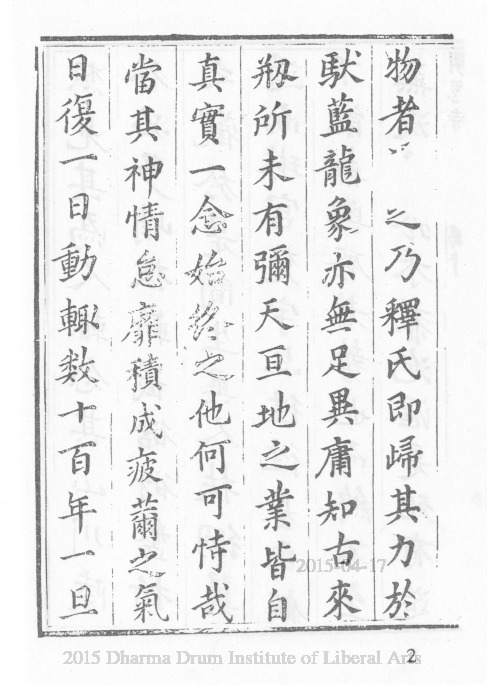 物者 之乃釋氏即歸其力於
馱藍龍象亦無足異庸知古來
剏所未有彌天亘地之業皆自
真實一念始終之他何可恃哉
當其神情怠靡積成疲薾之氣
日復一日動輙数十百年一旦
2015-04-17
2015 Dharma Drum Institute of Liberal Arts
2